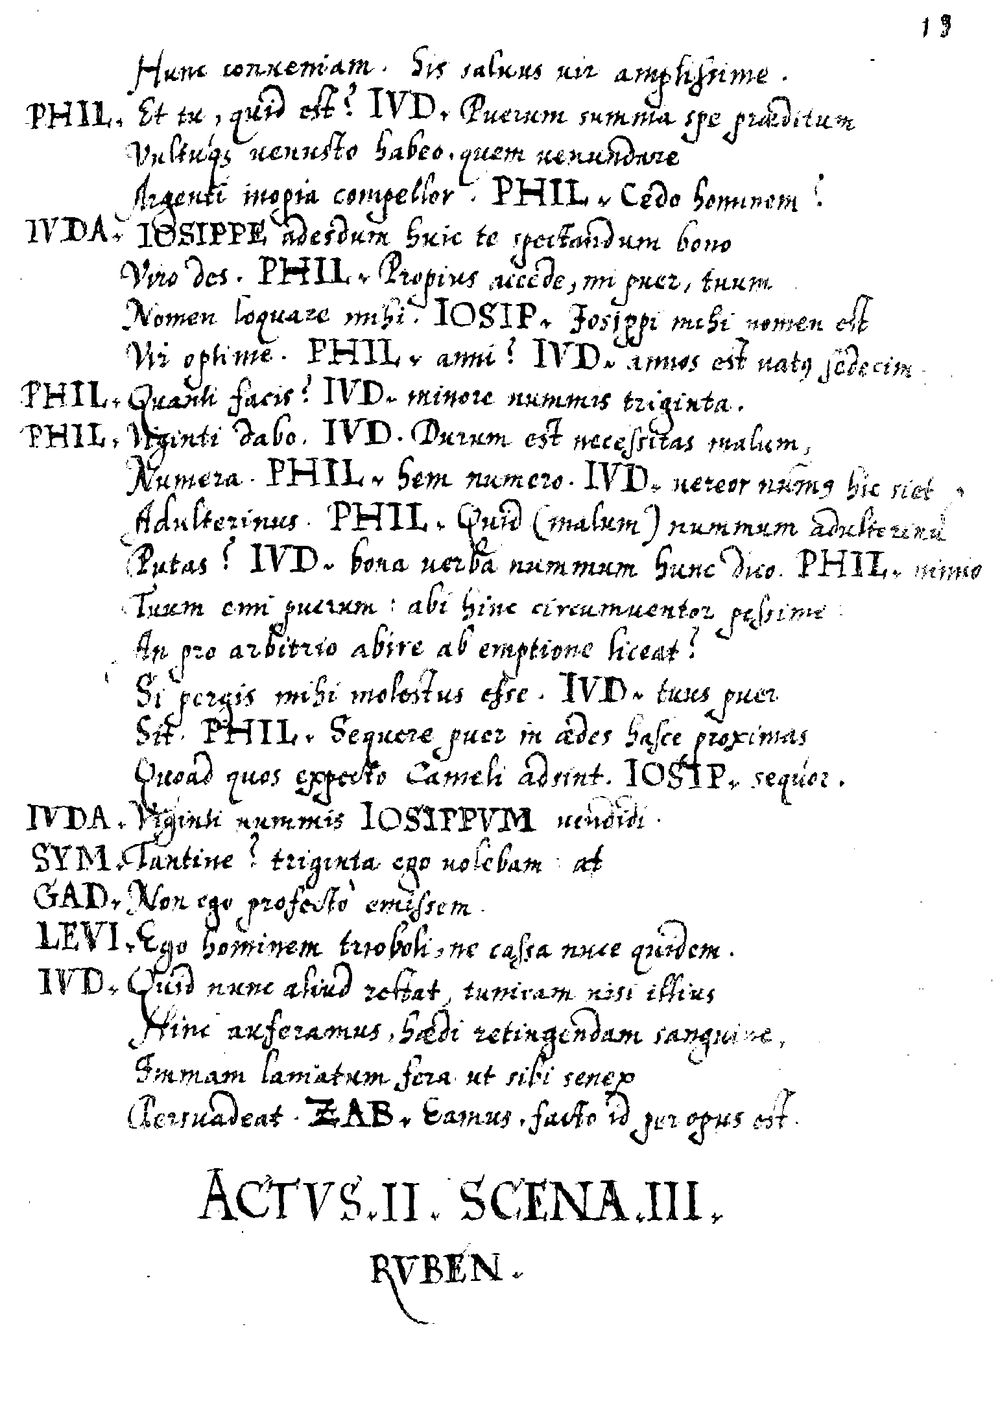 19
Hunc conueniam. Sis saluus uir amplissime.
PHIL. Et tu, quid est? IVD. Puerum summa spe præditum
Vultuqꝫ uenusto habeo, quem uenundare
Argenti inopia compellor. PHIL. Cedo hominem?
IVDA. IOSIPPE adesdum huic te spectandum bono
Viro des. PHIL. Propius accede, mi puer, tuum
Nomen loquare mihi. IOSIP. Josippi mihi nomen est
Vir optime. PHIL. anni? IVD. annos est natꝰ sedecim.
PHIL. Quanti facis? IVD. minore nummis triginta.
PHIL. Viginti dabo. IVD. Durum est necessitas malum,
Numera. PHIL. hem numero. IVD. uereor num̄ꝰ hic siet,
Adulterinus. PHIL. Quid (malum) nummum adulterinū
Putas? IVD. bona uerba nummum hunc duo. PHIL. nimio
Tuum emi puerum: abi hinc circumuentor pessime:
An pro arbitrio abire ab emptione liceat?
Si pergis mihi molestus esse. IVD. tuus puer
Sit. PHIL. Sequere puer in ædes hasce proximas
Quoad quos expecto Cameli adsint. IOSIP. sequor.
IVDA. Viginti nummis IOSIPPVM uendidi.
SYM. Tantine? triginta ego nolebam: at
GAD. Non ego profectò emissem.
LEVI. Ego hominem trioboli, ne cassa nuce quidem.
IVD. Quid nunc aliud restat, tunicam nisi illius
Hinc auferamus, hædi retingendam sanguine,
Immam laniatum fera ut sibi senex
Persuadeat. ZAB. Eamus, facto id per opus est.
ACTVS. II. SCENA. III.
RVBEN.